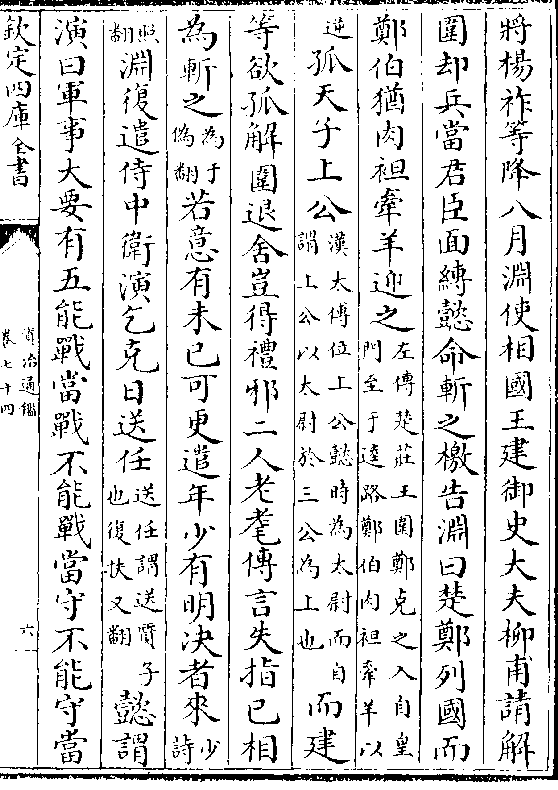 將楊祚等降八月淵使相國王建御史大夫柳甫請解
圍却兵當君臣面縛懿命斬之檄告淵曰楚鄭列國而
鄭伯猶肉袒牽羊迎之左傳楚莊王圍鄭克之入自皇門至于逵路鄭伯肉袒牽羊以
逆孤天子上公漢太傅位上公懿時為太尉而自謂上公以太尉於三公為上也而建
等欲孤解圍退舍豈得禮邪二人老耄傳言失指已相
為斬之為于偽翻若意有未已可更遣年少有明决者來少詩
照翻淵復遣侍中衛演乞克日送任送任謂送質子也復扶又翻懿謂
演曰軍事大要有五能戰當戰不能戰當守不能守當
欽定四庫全書
資治通鑑
卷七十四
六